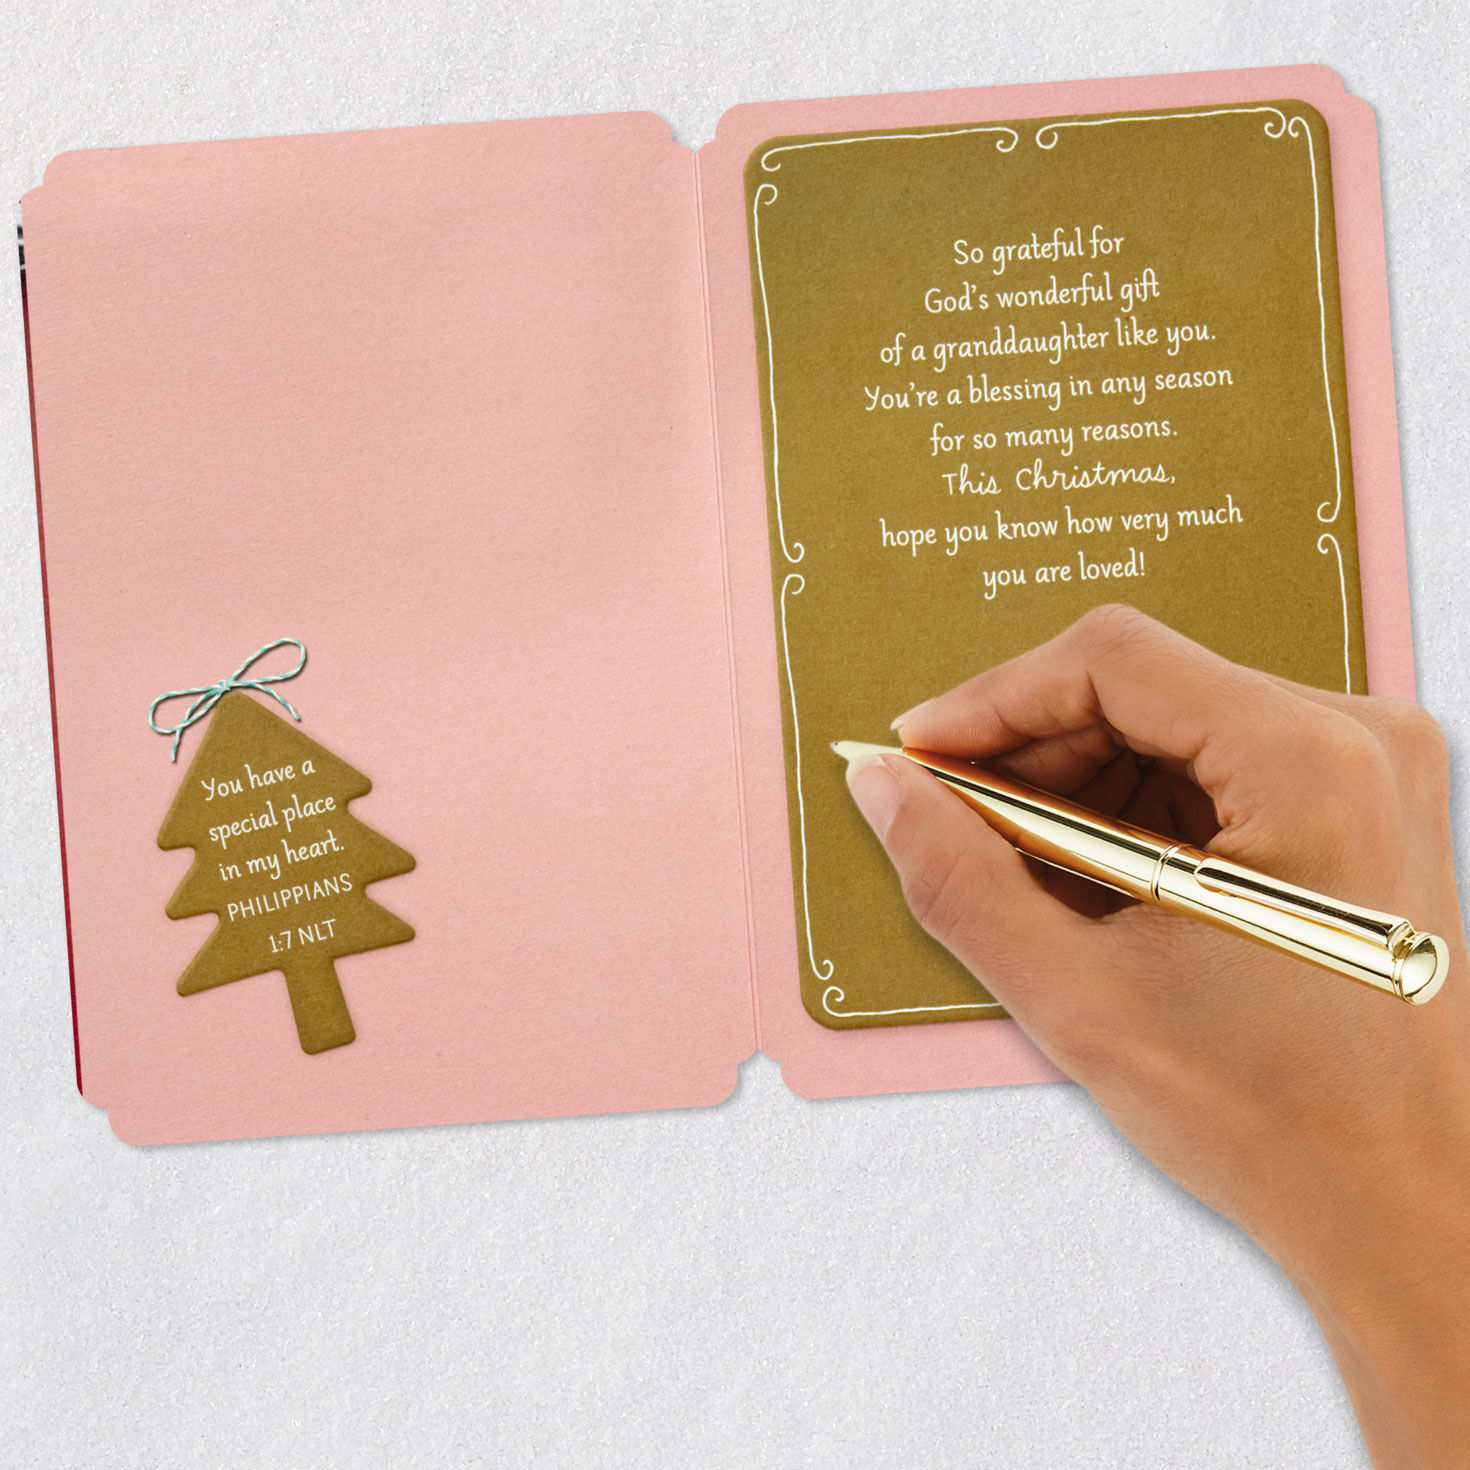 You have a
special place
in my heart.
PHILIPPIANS
1:7 NLT
So grateful for
God's wonderful gift
of a granddaughter like you.
You're a blessing in any season
for so many reasons.
This Christmas,
hope you know how very much
you are loved!